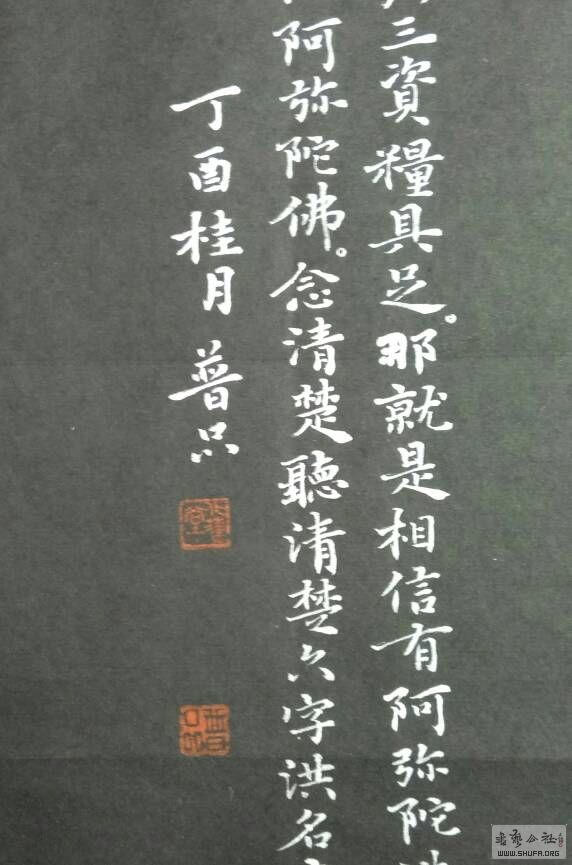 三資糧具足。那就是相信有阿弥陀
阿弥陀佛。念清楚聽清楚六字洪名
丁酉桂月 普只
WWW.SHUFA.ORG